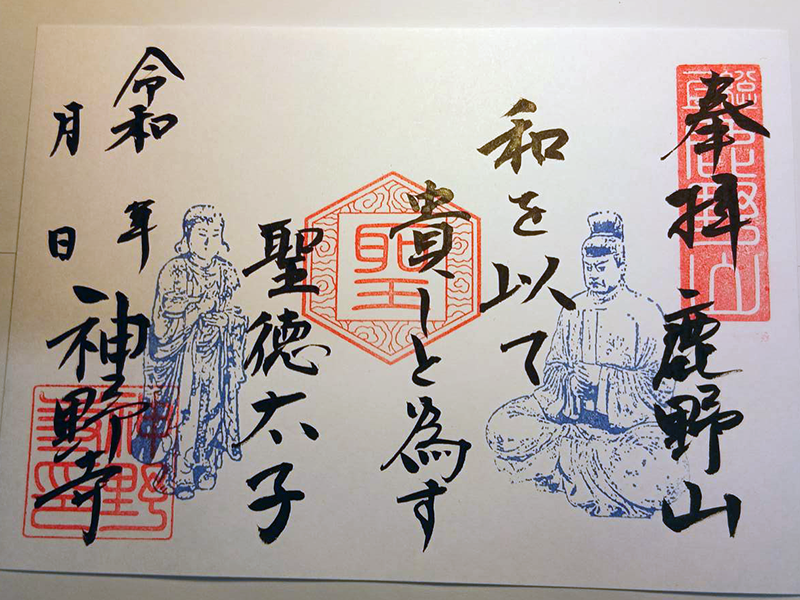 奉拝 鹿野山
和を以て
貴しと為す
聖徳太子
令和 年
月 日
神野寺
聖